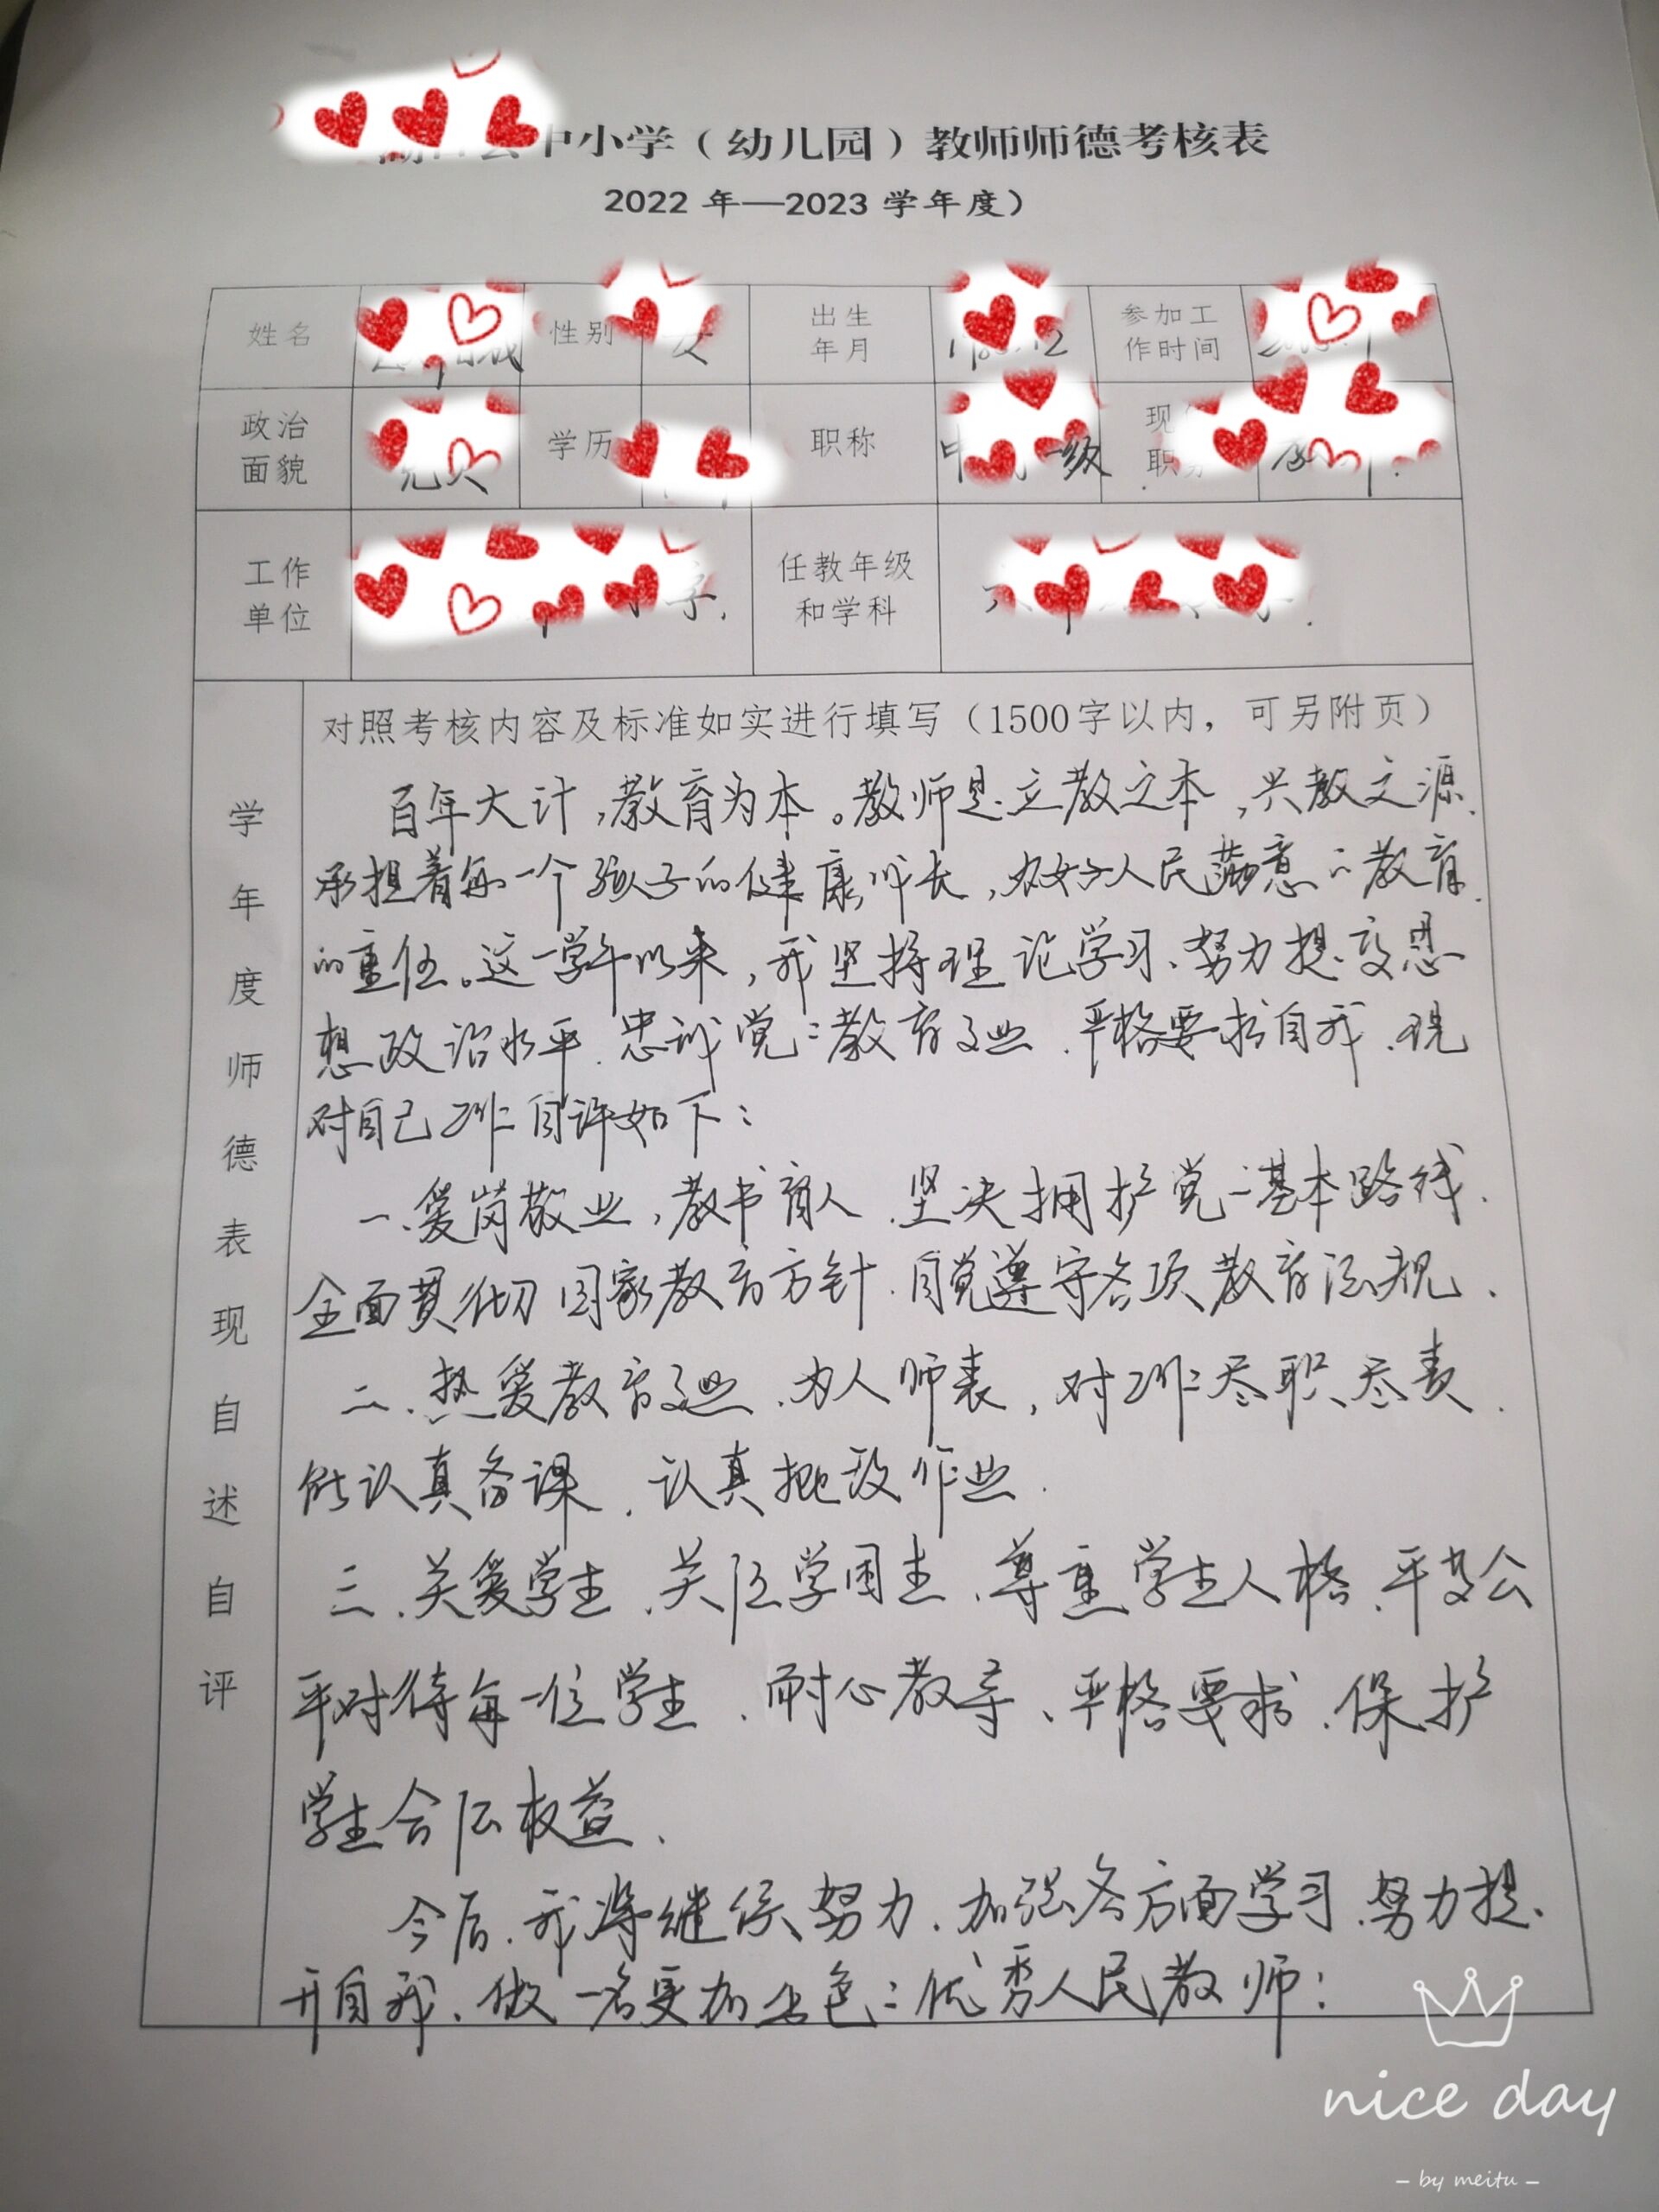 中小学（幼儿园）教师师德考核表
2022 年—2023 学年度）
姓名 性别 女 出生年月 参加工作时间
政治面貌 党员 学历 职称 一级 现 职
工作单位 任教年级和学科
学年度师德表现自述自评
对照考核内容及标准如实进行填写（1500字以内，可另附页）
百年大计，教育为本。教师是立教之本，兴教之源，
承担着每一个孩子的健康成长，办好人民满意的教育
的重任。这一学年以来，我坚持理论学习、努力提高思
想政治水平，忠诚党的教育事业，严格要求自我，现
对自己工作自评如下：
一、爱岗敬业，教书育人，坚决拥护党的基本路线，
全面贯彻国家教育方针，自觉遵守各项教育法规。
二、热爱教育事业，为人师表，对工作尽职尽责，
能认真备课，认真批改作业。
三、关爱学生，关注学困生，尊重学生人格，平等公
平对待每一位学生，耐心教导、严格要求，保护
学生合法权益。
今后，我将继续努力，加强各方面学习，努力提
升自我，做一名更加出色的优秀人民教师！
nice day
- by meitu -